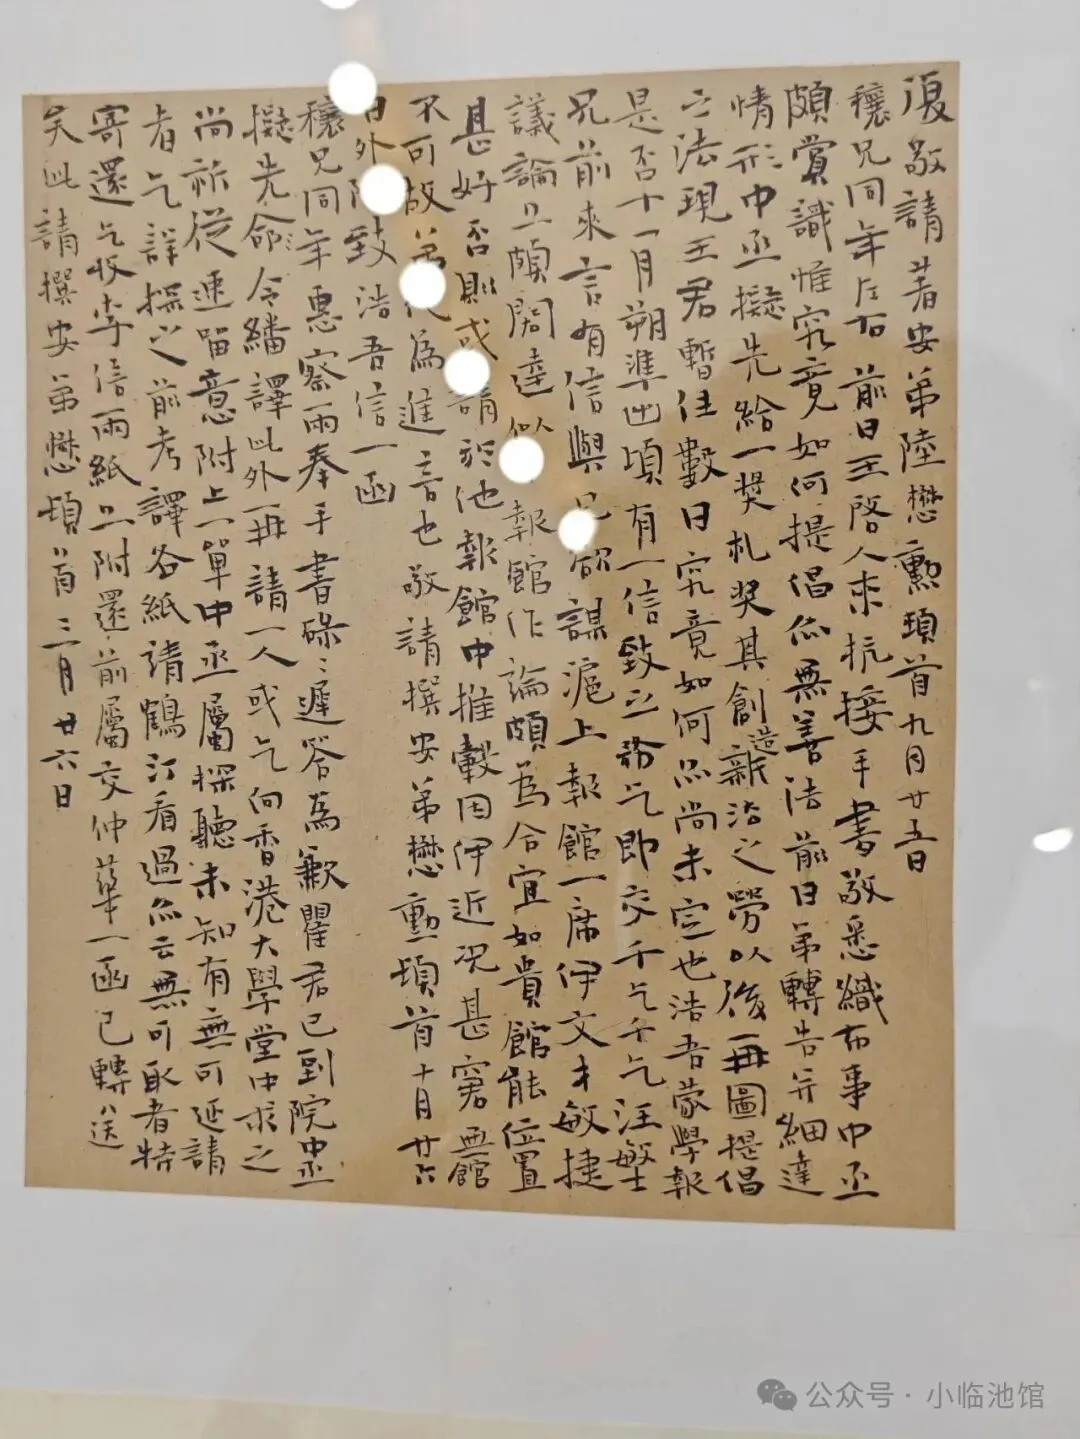 復敬請著安弟陸懋勳頓首九月廿五日
穰兄同年左右前日王啓人來杭接手書敬悉織布事中丞
頗賞識惟究竟如何提倡亦無善法前日弟轉告并細達
情形中丞擬先給一獎札奬其創造新法之勞以後再圖提倡
之法現王君暫住數日究竟如何亦尚未定也浩吾蒙學報
是否十一月朔準出頃有一信致之希乞即交千乞千乞汪敏士
兄前來言有信與兄欲謀滬上報館一席伊文才敏捷
議論亦頗闊達似 報館作論頗為合宜如貴館能位置
甚好否則或請於他報館中推轂因伊近況甚窘無館
不可故弟代為進言也敬請撰安弟懋勳頓首十月廿六
日外附致浩吾信一函
穰兄同年惠察兩奉手書碌〻遲答為歉瞿君已到院中丞
擬先命〻令繙譯此外再請一人或乞向香港大學堂中求之
尚祈從速留意附上一單中丞屬探聽未知有無可延請
者乞詳探之前考譯各紙請鶴汀看過亦云無可取者特
寄還乞收李信兩紙亦附還前屬交仲華一函已轉送
矣此請撰安弟懋頓首三月廿六日
公众号·小临池馆